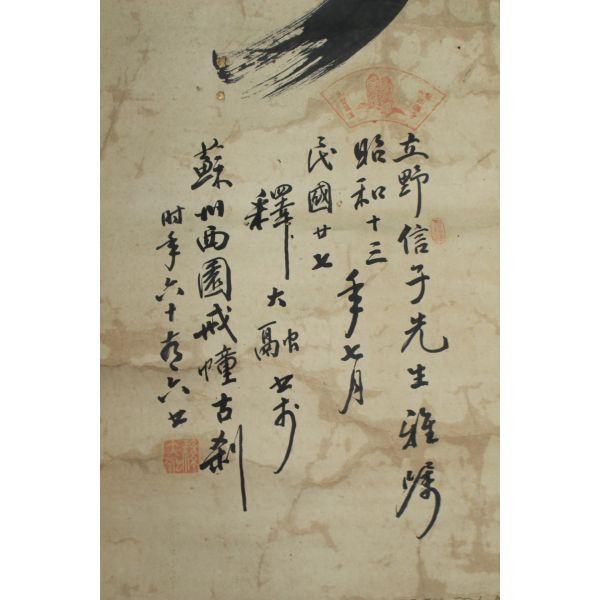 立野信子先生雅屬
昭和十三
民國廿七
年七月
釋大融書於
蘇州西園戒幢古剎
时年六十有六